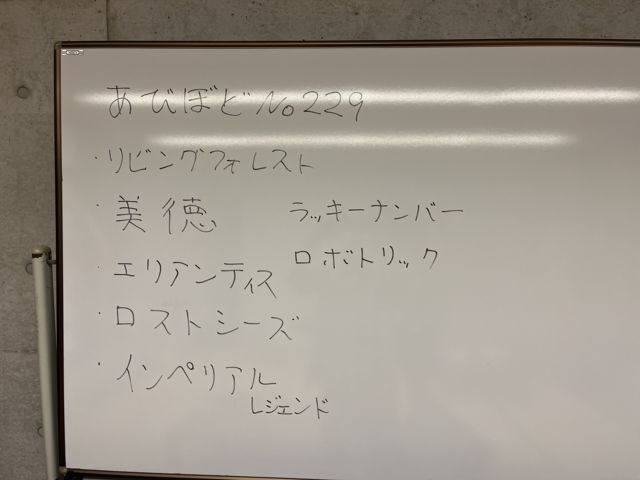 あびぼど No229
・リビングフォレスト
・美徳
ラッキーナンバー
・エリアンティス
ロボトリック
・ロストシーズ
・インペリアル
レジェンド